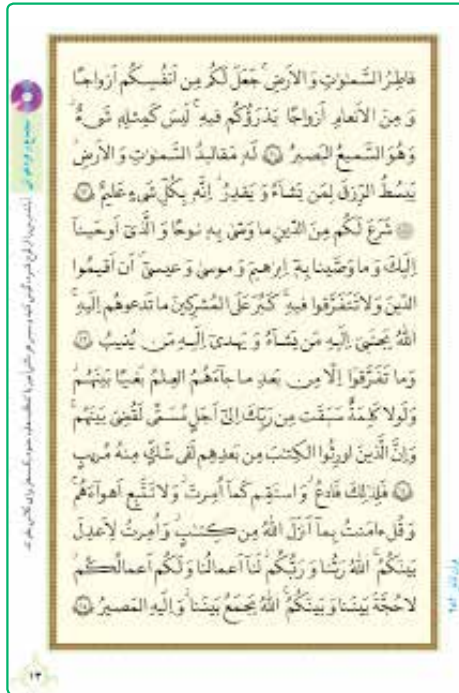 فاطِرُ السَّمٰوٰتِ وَ الاَرضِ ۚ جَعَلَ لَكُم مِن اَنفُسِكُم اَزواجًا
وَ مِنَ الاَنعامِ اَزواجًا يَذرَؤُكُم فيهِ ۚ لَيسَ كَمِثلِهٖ شَىءٌ ۖ
وَ هُوَ السَّميعُ البَصيرُ ﴿١١﴾ لَهٗ مَقاليدُ السَّمٰوٰتِ وَ الاَرضِ ۖ
يَبسُطُ الرِّزقَ لِمَن يَشآءُ وَ يَقدِرُ ۚ اِنَّهٗ بِكُلِّ شَىءٍ عَليمٌ ﴿١٢﴾
شَرَعَ لَكُم مِنَ الدّينِ ما وَصّىٰ بِهٖ نوحًا وَ الَّذى اَوحَينا
اِلَيكَ وَ ما وَصَّينا بِهٖ اِبرٰهيمَ وَ موسىٰ وَ عيسىٰ ۖ اَن اَقيمُوا
الدّينَ وَ لا تَتَفَرَّقوا فيهِ ۚ كَبُرَ عَلَى المُشرِكينَ ما تَدعوهُم اِلَيهِ ۚ
اَللهُ يَجتَبى اِلَيهِ مَن يَشآءُ وَ يَهدى اِلَيهِ مَن يُنيبُ ﴿١٣﴾
وَ ما تَفَرَّقوا اِلّا مِن بَعدِ ما جآءَهُمُ العِلمُ بَغيًا بَينَهُم ۚ
وَ لَولا كَلِمَةٌ سَبَقَت مِن رَبِّكَ اِلىٰٓ اَجَلٍ مُسَمًّى لَقُضِىَ بَينَهُم ۚ
وَ اِنَّ الَّذينَ اورِثُوا الكِتٰبَ مِن بَعدِهِم لَفى شَكٍّ مِنهُ مُريبٍ
﴿١٤﴾ فَلِذٰلِكَ فَادعُ ۖ وَ استَقِم كَمآ اُمِرتَ ۖ وَ لا تَتَّبِع اَهوآءَهُم ۖ
وَ قُل ءامَنتُ بِمآ اَنزَلَ اللهُ مِن كِتٰبٍ ۖ وَ اُمِرتُ لِاَعدِلَ
بَينَكُمُ ۖ اللهُ رَبُّنا وَ رَبُّكُم ۖ لَنآ اَعمالُنا وَ لَكُم اَعمالُكُم ۖ
لا حُجَّةَ بَينَنا وَ بَينَكُمُ ۖ اللهُ يَجمَعُ بَينَنا ۖ وَ اِلَيهِ المَصيرُ ﴿١٥﴾
١٣